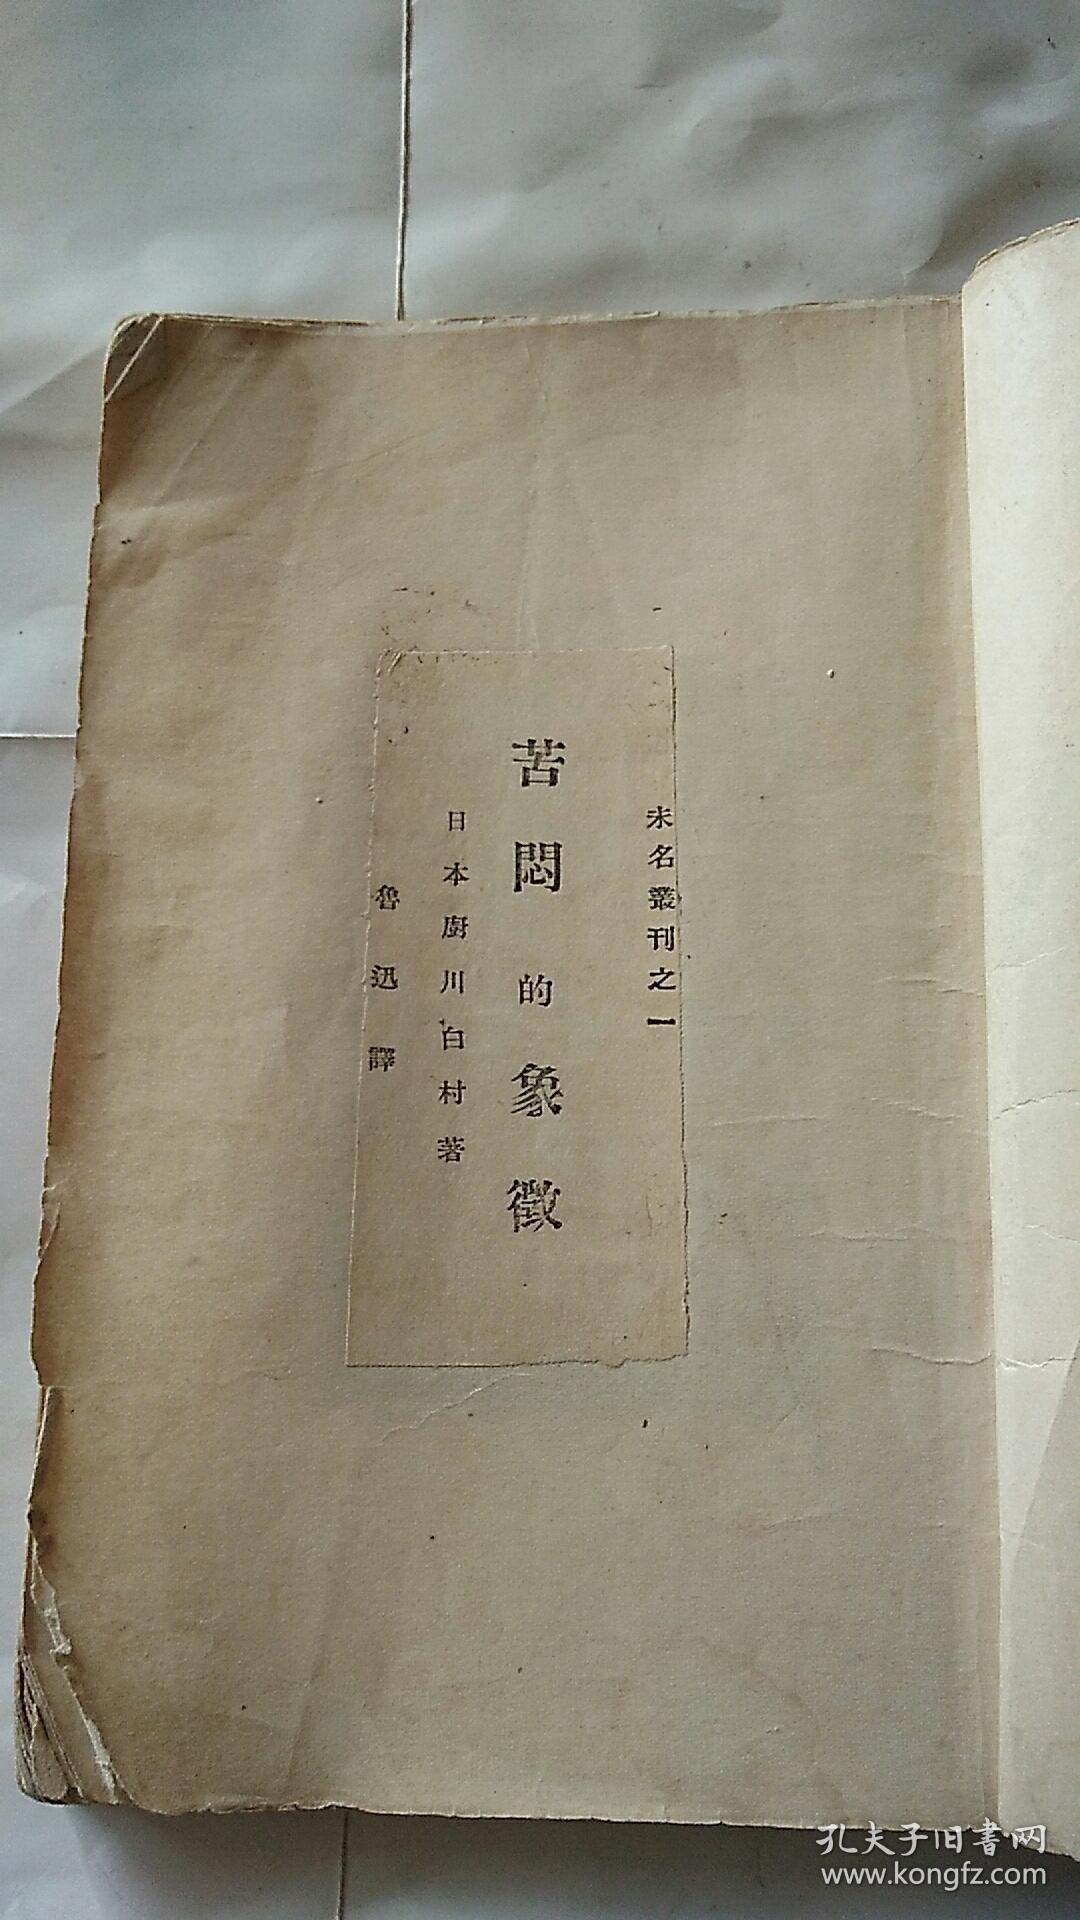 未名叢刊之一
苦悶的象徵
日本廚川白村著
魯迅譯
孔夫子旧书网
www.kongfz.com